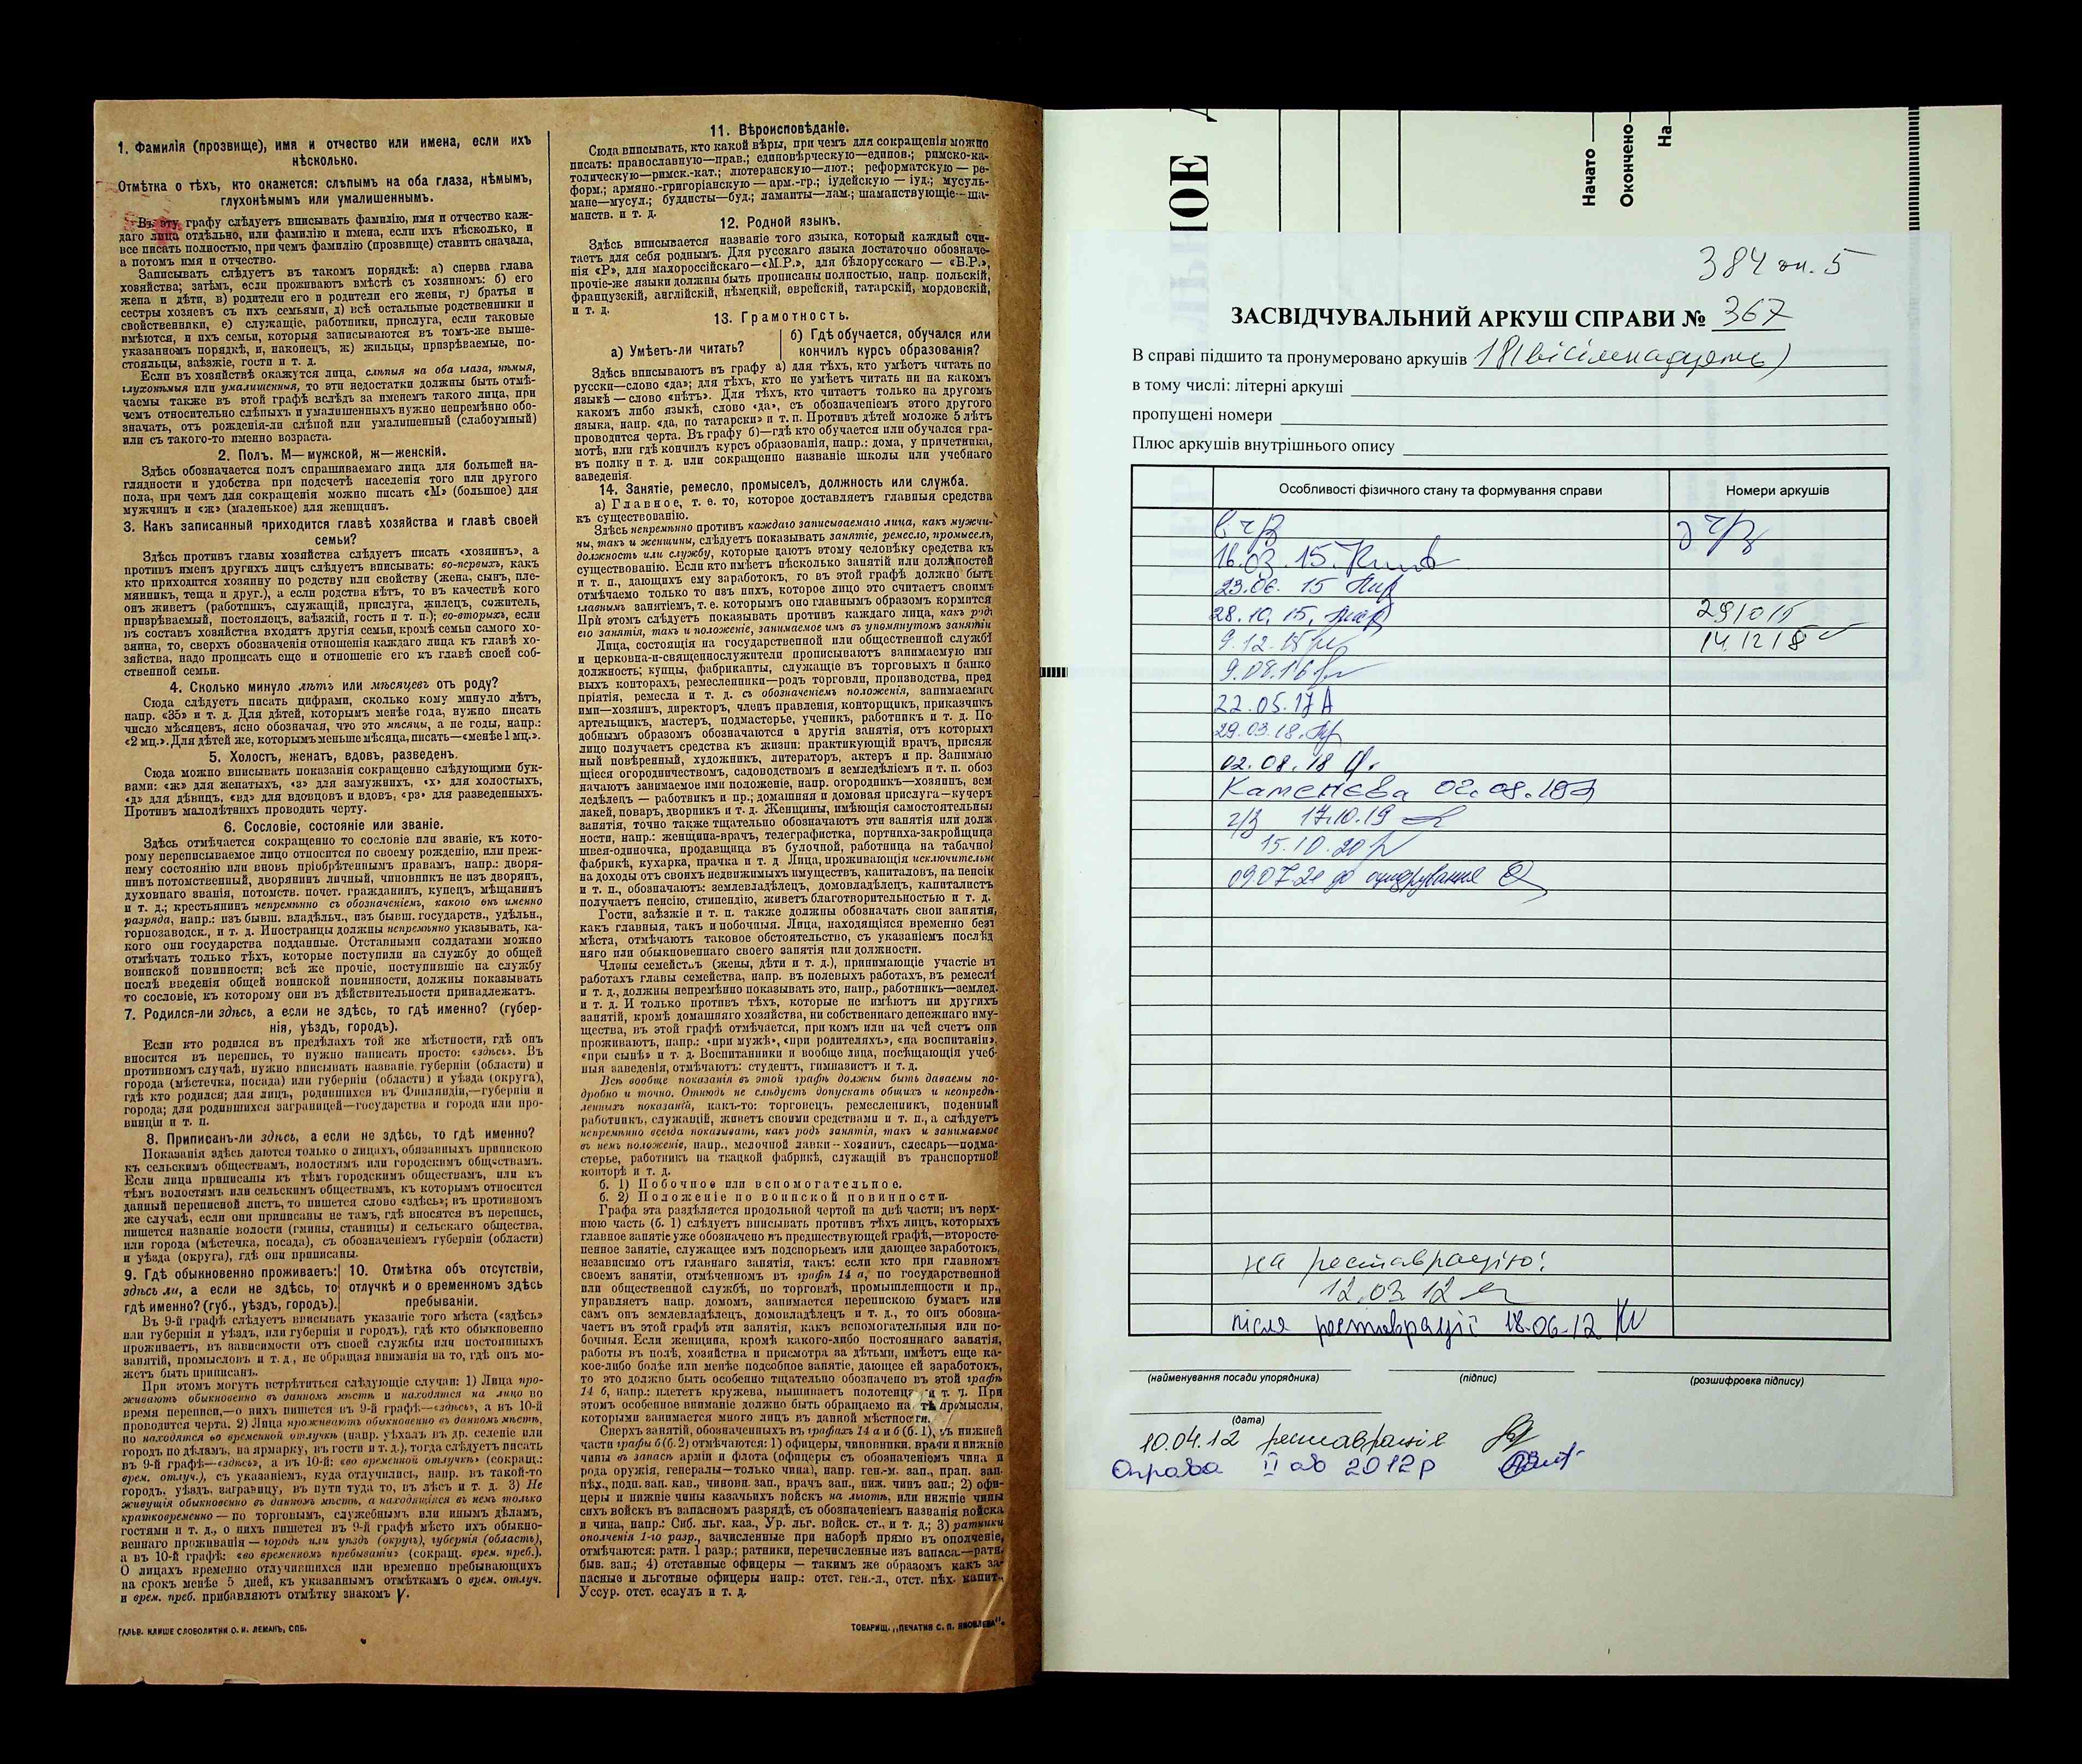 1. Фамилія (прозвище), имя и отчество или имена, если ихъ
нѣсколько.
Отмѣтка о тѣхъ, кто окажется: слѣпымъ на оба глаза, нѣмымъ,
глухонѣмымъ или умалишеннымъ.
Въ эту графу слѣдуетъ вписывать фамилію, имя и отчество каж-
даго лица отдѣльно, или фамилію и имена, если ихъ нѣсколько, и
все писать полностью, при чемъ фамилію (прозвище) ставить сначала,
а потомъ имя и отчество.
Записывать слѣдуетъ въ такомъ порядкѣ: а) сперва глава
хозяйства; затѣмъ, если проживаютъ вмѣстѣ съ хозяиномъ: б) его
жена и дѣти, в) родители его и родители его жены, г) братья и
сестры хозяевъ съ ихъ семьями, д) всѣ остальные родственники и
свойственники, е) служащіе, работники, прислуга, если таковые
имѣются, и ихъ семьи, которыя записываются въ томъ-же выше-
указанномъ порядкѣ, и, наконецъ, ж) жильцы, призрѣваемые, по-
стояльцы, заѣзжіе, гости и т. п.
Если въ хозяйствѣ окажутся лица, слѣпыя на оба глаза, нѣмыя,
глухонѣмыя или умалишенныя, то эти недостатки должны быть отмѣ-
чаемы также въ этой графѣ вслѣдъ за именемъ такого лица, при
чемъ относительно слѣпыхъ и умалишенныхъ нужно непремѣнно обо-
значать, отъ рожденія-ли слѣпой или умалишенный (слабоумный)
или съ такого-то именно возраста.
2. Полъ. М—мужской, ж—женскій.
Здѣсь обозначается полъ спрашиваемаго лица для большей на-
глядности и удобства при подсчетѣ населенія того или другого
пола, при чемъ для сокращенія можно писать «М» (большое) для
мужчинъ и «ж» (маленькое) для женщинъ.
3. Какъ записанный приходится главѣ хозяйства и главѣ своей
семьи?
Здѣсь противъ главы хозяйства слѣдуетъ писать «хозяинъ», а
противъ именъ другихъ лицъ слѣдуетъ вписывать: во-первыхъ, какъ
кто приходится хозяину по родству или свойству (жена, сынъ, пле-
мянникъ, теща и друг.), а если родства нѣтъ, то въ качествѣ кого
онъ живетъ (работникъ, служащій, прислуга, жилецъ, сожитель,
призрѣваемый, постоялецъ, заѣзжій, гость и т. п.); во-вторыхъ, если
въ составъ хозяйства входятъ другія семьи, кромѣ семьи самого хо-
зяина, то, сверхъ обозначенія отношенія каждаго лица къ главѣ хо-
зяйства, надо прописать еще и отношеніе его къ главѣ своей соб-
ственной семьи.
4. Сколько минуло лѣтъ или мѣсяцевъ отъ роду?
Сюда слѣдуетъ писать цифрами, сколько кому минуло лѣтъ,
напр. «35» и т. д. Для дѣтей, которымъ менѣе года, нужно писать
число мѣсяцевъ, ясно обозначая, что это мѣсяцы, а не годы, напр.:
«2 мц.». Для дѣтей же, которымъ меньше мѣсяца, писать—«менѣе 1 мц.».
5. Холостъ, женатъ, вдовъ, разведенъ.
Сюда можно вписывать показанія сокращенно слѣдующими бук-
вами: «ж» для женатыхъ, «з» для замужнихъ, «х» для холостыхъ,
«д» для дѣвицъ, «вд» для вдовцовъ и вдовъ, «рз» для разведенныхъ.
Противъ малолѣтнихъ проводить черту.
6. Сословіе, состояніе или званіе.
Здѣсь отмѣчается сокращенно то сословіе или званіе, къ кото-
рому переписываемое лицо относится по своему рожденію, или преж-
нему состоянію или вновь пріобрѣтеннымъ правамъ, напр.: дворя-
нинъ потомственный, дворянинъ личный, чиновникъ не изъ дворянъ,
духовнаго званія, потомств. почет. гражданинъ, купецъ, мѣщанинъ
и т. д.; крестьянинъ непремѣнно съ обозначеніемъ, какого онъ именно
разряда, напр.: изъ бывш. владѣльч., изъ бывш. государств., удѣльн.,
горнозаводск., и т. д. Иностранцы должны непремѣнно указывать, ка-
кого они государства подданные. Отставными солдатами можно
отмѣчать только тѣхъ, которые поступили на службу до общей
воинской повинности; всѣ же прочіе, поступившіе на службу
послѣ введенія общей воинской повинности, должны показывать
то сословіе, къ которому они въ дѣйствительности принадлежатъ.
7. Родился-ли здѣсь, а если не здѣсь, то гдѣ именно? (губер-
нія, уѣздъ, городъ).
Если кто родился въ предѣлахъ той же мѣстности, гдѣ онъ
вносится въ перепись, то нужно написать просто: «здѣсь». Въ
противномъ случаѣ, нужно вписывать названіе губерніи (области) и
города (мѣстечка, посада) или губерніи (области) и уѣзда (округа),
гдѣ кто родился; для лицъ, родившихся въ Финляндіи,—губерніи и
города; для родившихся заграницей—государства и города или про-
винціи и т. п.
8. Приписанъ-ли здѣсь, а если не здѣсь, то гдѣ именно?
Показанія здѣсь даются только о лицахъ, обязанныхъ припискою
къ сельскимъ обществамъ, волостямъ или городскимъ обществамъ.
Если лица приписаны къ тѣмъ городскимъ обществамъ, или къ
тѣмъ волостямъ или сельскимъ обществамъ, къ которымъ относится
данный переписной листъ, то пишется слово «здѣсь»; въ противномъ
же случаѣ, если они приписаны не тамъ, гдѣ вносятся въ перепись,
пишется названіе волости (гмины, станицы) и сельскаго общества,
или города (мѣстечка, посада), съ обозначеніемъ губерніи (области)
и уѣзда (округа), гдѣ они приписаны.
9. Гдѣ обыкновенно проживаетъ:
здѣсь ли, а если не здѣсь, то
гдѣ именно? (губ., уѣздъ, городъ).
10. Отмѣтка объ отсутствіи,
отлучкѣ и о временномъ здѣсь
пребываніи.
Въ 9-й графѣ слѣдуетъ вписывать указаніе того мѣста («здѣсь»
или губернія и уѣздъ, или губернія и городъ), гдѣ кто обыкновенно
проживаетъ, въ зависимости отъ своей службы или постоянныхъ
занятій, промысловъ и т. д., не обращая вниманія на то, гдѣ онъ мо-
жетъ быть приписанъ.
При этомъ могутъ встрѣтиться слѣдующіе случаи: 1) Лица про-
живаютъ обыкновенно въ данномъ мѣстѣ и находятся на лицо во
время переписи,—о нихъ пишется въ 9-й графѣ—«здѣсь», а въ 10-й
проводится черта. 2) Лица проживаютъ обыкновенно въ данномъ мѣстѣ,
но находятся во временной отлучкѣ (напр. уѣхалъ въ др. селеніе или
городъ по дѣламъ, на ярмарку, въ гости и т. д.), тогда слѣдуетъ писать
въ 9-й графѣ—«здѣсь», а въ 10-й: «во временной отлучкѣ» (сокращ.:
врем. отлуч.), съ указаніемъ, куда отлучились, напр. въ такой-то
городъ, уѣздъ, заграницу, въ пути туда то, въ лѣсъ и т. д. 3) Не
живущія обыкновенно въ данномъ мѣстѣ, а находящіяся въ немъ только
кратковременно — по торговымъ, служебнымъ или инымъ дѣламъ,
гостями и т. д., о нихъ пишется въ 9-й графѣ мѣсто ихъ обыкно-
веннаго проживанія — городъ или уѣздъ (округъ), губернія (область),
а въ 10-й графѣ: «во временномъ пребываніи» (сокращ. врем. преб.).
О лицахъ временно отлучившихся или временно пребывающихъ
на срокъ менѣе 5 дней, къ указаннымъ отмѣткамъ о врем. отлуч.
и врем. преб. прибавляютъ отмѣтку знакомъ V.
ГАЛЬВ. КЛИШЕ СЛОВОЛИТНИ О. И. ЛЕМАНЪ, СПБ.
11. Вѣроисповѣданіе.
Сюда вписывать, кто какой вѣры, при чемъ для сокращенія можно
писать: православную—прав.; единовѣрческую—единов.; римско-ка-
толическую—римск.-кат.; лютеранскую—лют.; реформатскую — ре-
форм.; армяно-григоріанскую — арм.-гр.; іудейскую — іуд.; мусуль-
мане—мусул.; буддисты—буд.; ламаиты—лам.; шаманствующіе—ша-
манств. и т. д.
12. Родной языкъ.
Здѣсь вписывается названіе того языка, который каждый счи-
таетъ для себя роднымъ. Для русскаго языка достаточно обозначе-
нія «Р», для малороссійскаго—«М.Р.», для бѣлорусскаго — «Б.Р.»,
прочіе-же языки должны быть прописаны полностью, напр. польскій,
французскій, англійскій, нѣмецкій, еврейскій, татарскій, мордовскій,
и т. д.
13. Грамотность.
а) Умѣетъ-ли читать?
б) Гдѣ обучается, обучался или
кончилъ курсъ образованія?
Здѣсь вписываютъ въ графу а) для тѣхъ, кто умѣетъ читать по
русски—слово «да»; для тѣхъ, кто не умѣетъ читать ни на какомъ
языкѣ — слово «нѣтъ». Для тѣхъ, кто читаетъ только на другомъ
какомъ либо языкѣ, слово «да», съ обозначеніемъ этого другого
языка, напр. «да, по татарски» и т. п. Противъ дѣтей моложе 5 лѣтъ
проводится черта. Въ графу б)—гдѣ кто обучается или обучался гра-
мотѣ, или гдѣ кончилъ курсъ образованія, напр.: дома, у причетника,
въ полку и т. д. или сокращенно названіе школы или учебнаго
заведенія.
14. Занятіе, ремесло, промыселъ, должность или служба.
а) Главное, т. е. то, которое доставляетъ главныя средства
къ существованію.
Здѣсь непремѣнно противъ каждаго записываемаго лица, какъ мужчи-
ны, такъ и женщины, слѣдуетъ показывать занятіе, ремесло, промыселъ,
должность или службу, которые даютъ этому человѣку средства къ
существованію. Если кто имѣетъ нѣсколько занятій или должностей
и т. п., дающихъ ему заработокъ, то въ этой графѣ должно быть
отмѣчаемо только то изъ нихъ, которое лицо это считаетъ своимъ
главнымъ занятіемъ, т. е. которымъ оно главнымъ образомъ кормится
При этомъ слѣдуетъ показывать противъ каждаго лица, какъ родъ
его занятія, такъ и положеніе, занимаемое имъ въ упомянутомъ занятіи
Лица, состоящія на государственной или общественной службѣ
и церковно-и-священнослужители прописываютъ занимаемую ими
должность; купцы, фабриканты, служащіе въ торговыхъ и банко
выхъ конторахъ, ремесленники—родъ торговли, производства, пред
пріятія, ремесла и т. д. съ обозначеніемъ положенія, занимаемаго
ими—хозяинъ, директоръ, членъ правленія, конторщикъ, приказчикъ
артельщикъ, мастеръ, подмастерье, ученикъ, работникъ и т. д. По
добнымъ образомъ обозначаются и другія занятія, отъ которыхъ
лицо получаетъ средства къ жизни: практикующій врачъ, присяж
ный повѣренный, художникъ, литераторъ, актеръ и пр. Занимаю
щіеся огородничествомъ, садоводствомъ и земледѣліемъ и т. п. обоз
начаютъ занимаемое ими положеніе, напр. огородникъ—хозяинъ, зем
ледѣлецъ — работникъ и пр.; домашняя и домовая прислуга—кучеръ
лакей, поваръ, дворникъ и т. д. Женщины, имѣющія самостоятельныя
занятія, точно также тщательно обозначаютъ эти занятія или долж
ности, напр.: женщина-врачъ, телеграфистка, портниха-закройщица
швея-одиночка, продавщица въ булочной, работница на табачной
фабрикѣ, кухарка, прачка и т. д. Лица, проживающія исключительно
на доходы отъ своихъ недвижимыхъ имуществъ, капиталовъ, на пенсію
и т. п., обозначаютъ: землевладѣлецъ, домовладѣлецъ, капиталистъ
получаетъ пенсію, стипендію, живетъ благотворительностью и т. д.
Гости, заѣзжіе и т. п. также должны обозначать свои занятія,
какъ главныя, такъ и побочныя. Лица, находящіяся временно безъ
мѣста, отмѣчаютъ таковое обстоятельство, съ указаніемъ послѣд
няго или обыкновеннаго своего занятія или должности.
Члены семействъ (жены, дѣти и т. д.), принимающіе участіе въ
работахъ главы семейства, напр. въ полевыхъ работахъ, въ ремеслѣ
и т. д., должны непремѣнно показывать это, напр., работникъ—землед.
и т. д. И только противъ тѣхъ, которые не имѣютъ ни другихъ
занятій, кромѣ домашняго хозяйства, ни собственнаго денежнаго иму-
щества, въ этой графѣ отмѣчается, при комъ или на чей счетъ они
проживаютъ, напр.: «при мужѣ», «при родителяхъ», «на воспитаніи»,
«при сынѣ» и т. д. Воспитанники и вообще лица, посѣщающія учеб-
ныя заведенія, отмѣчаютъ: студентъ, гимназистъ и т. д.
Всѣ вообще показанія въ этой графѣ должны быть даваемы по-
дробно и точно. Отнюдь не слѣдуетъ допускать общихъ и неопредѣ-
ленныхъ показаній, какъ-то: торговецъ, ремесленникъ, поденный
работникъ, служащій, живетъ своими средствами и т. п., а слѣдуетъ
непремѣнно всегда показывать, какъ родъ занятія, такъ и занимаемое
въ немъ положеніе, напр., мелочной лавки — хозяинъ, слесарь—подма-
стерье, работникъ на ткацкой фабрикѣ, служащій въ транспортной
конторѣ и т. д.
б. 1) Побочное или вспомогательное.
б. 2) Положеніе по воинской повинности.
Графа эта раздѣляется продольной чертой на двѣ части; въ верх-
нюю часть (б. 1) слѣдуетъ вписывать противъ тѣхъ лицъ, которыхъ
главное занятіе уже обозначено въ предшествующей графѣ,—второсте-
пенное занятіе, служащее имъ подспорьемъ или дающее заработокъ,
независимо отъ главнаго занятія, такъ: если кто при главномъ
своемъ занятіи, отмѣченномъ въ графѣ 14 а, по государственной
или общественной службѣ, по торговлѣ, промышленности и пр.,
управляетъ напр. домомъ, занимается перепискою бумагъ или
самъ онъ землевладѣлецъ, домовладѣлецъ и т. д., то онъ обозна-
чаетъ въ этой графѣ эти занятія, какъ вспомогательныя или по-
бочныя. Если женщина, кромѣ какого-либо постояннаго занятія,
работы въ полѣ, хозяйства и присмотра за дѣтьми, имѣетъ еще ка-
кое-либо болѣе или менѣе подсобное занятіе, дающее ей заработокъ,
то это должно быть особенно тщательно обозначено въ этой графѣ
14 б, напр.: плететъ кружева, вышиваетъ полотенца и т. д. При
этомъ особенное вниманіе должно быть обращаемо на тѣ промыслы,
которыми занимается много лицъ въ данной мѣстности.
Сверхъ занятій, обозначенныхъ въ графахъ 14 а и б (б. 1), въ нижней
части графы б (б. 2) отмѣчаются: 1) офицеры, чиновники, врачи и нижніе
чины въ запасѣ арміи и флота (офицеры съ обозначеніемъ чина и
рода оружія, генералы—только чина), напр. ген.-м. зап., прап. зап.
пѣх., подп. зап. кав., чиновн. зап., врачъ зап., ниж. чинъ зап.; 2) офи-
церы и нижніе чины казачьихъ войскъ на льготѣ, или нижніе чины
сихъ войскъ въ запасномъ разрядѣ, съ обозначеніемъ названія войска
и чина, напр.: Сиб. льг. каз., Ур. льг. войск. ст., и т. д.; 3) ратники
ополченія 1-го разр., зачисленные при наборѣ прямо въ ополченіе,
отмѣчаются: ратн. 1 разр.; ратники, перечисленные изъ запаса—ратн.
быв. зап.; 4) отставные офицеры — такимъ же образомъ какъ за-
пасные и льготные офицеры напр.: отст. ген.-л., отст. пѣх. капит.,
Уссур. отст. есаулъ и т. д.
ТОВАРИЩ. „ПЕЧАТНЯ С. П. ЯКОВЛЕВА".
НОЕ
Начато
Окончено
На
384 оп. 5
ЗАСВІДЧУВАЛЬНИЙ АРКУШ СПРАВИ № 367
В справі підшито та пронумеровано аркушів 18 (вісімнадцять)
в тому числі: літерні аркуші
пропущені номери
Плюс аркушів внутрішнього опису
Особливості фізичного стану та формування справи
Номери аркушів
в ч/з
з ч/з
16.03.15.
23.06.15
28.10.15.
291015
9.12.15
14.12.15
9.08.16
22.05.17
29.03.18.
02.08.18
Каменєва 02.08.18
ч/з 17.10.19
15.10.20
090721 до оцифрування
на реставрацію!
12.03.12
після реставрації 18.06.12
(найменування посади упорядника)
(підпис)
(розшифровка підпису)
(дата)
10.04.12 реставрація
Оправа II ав 2012р